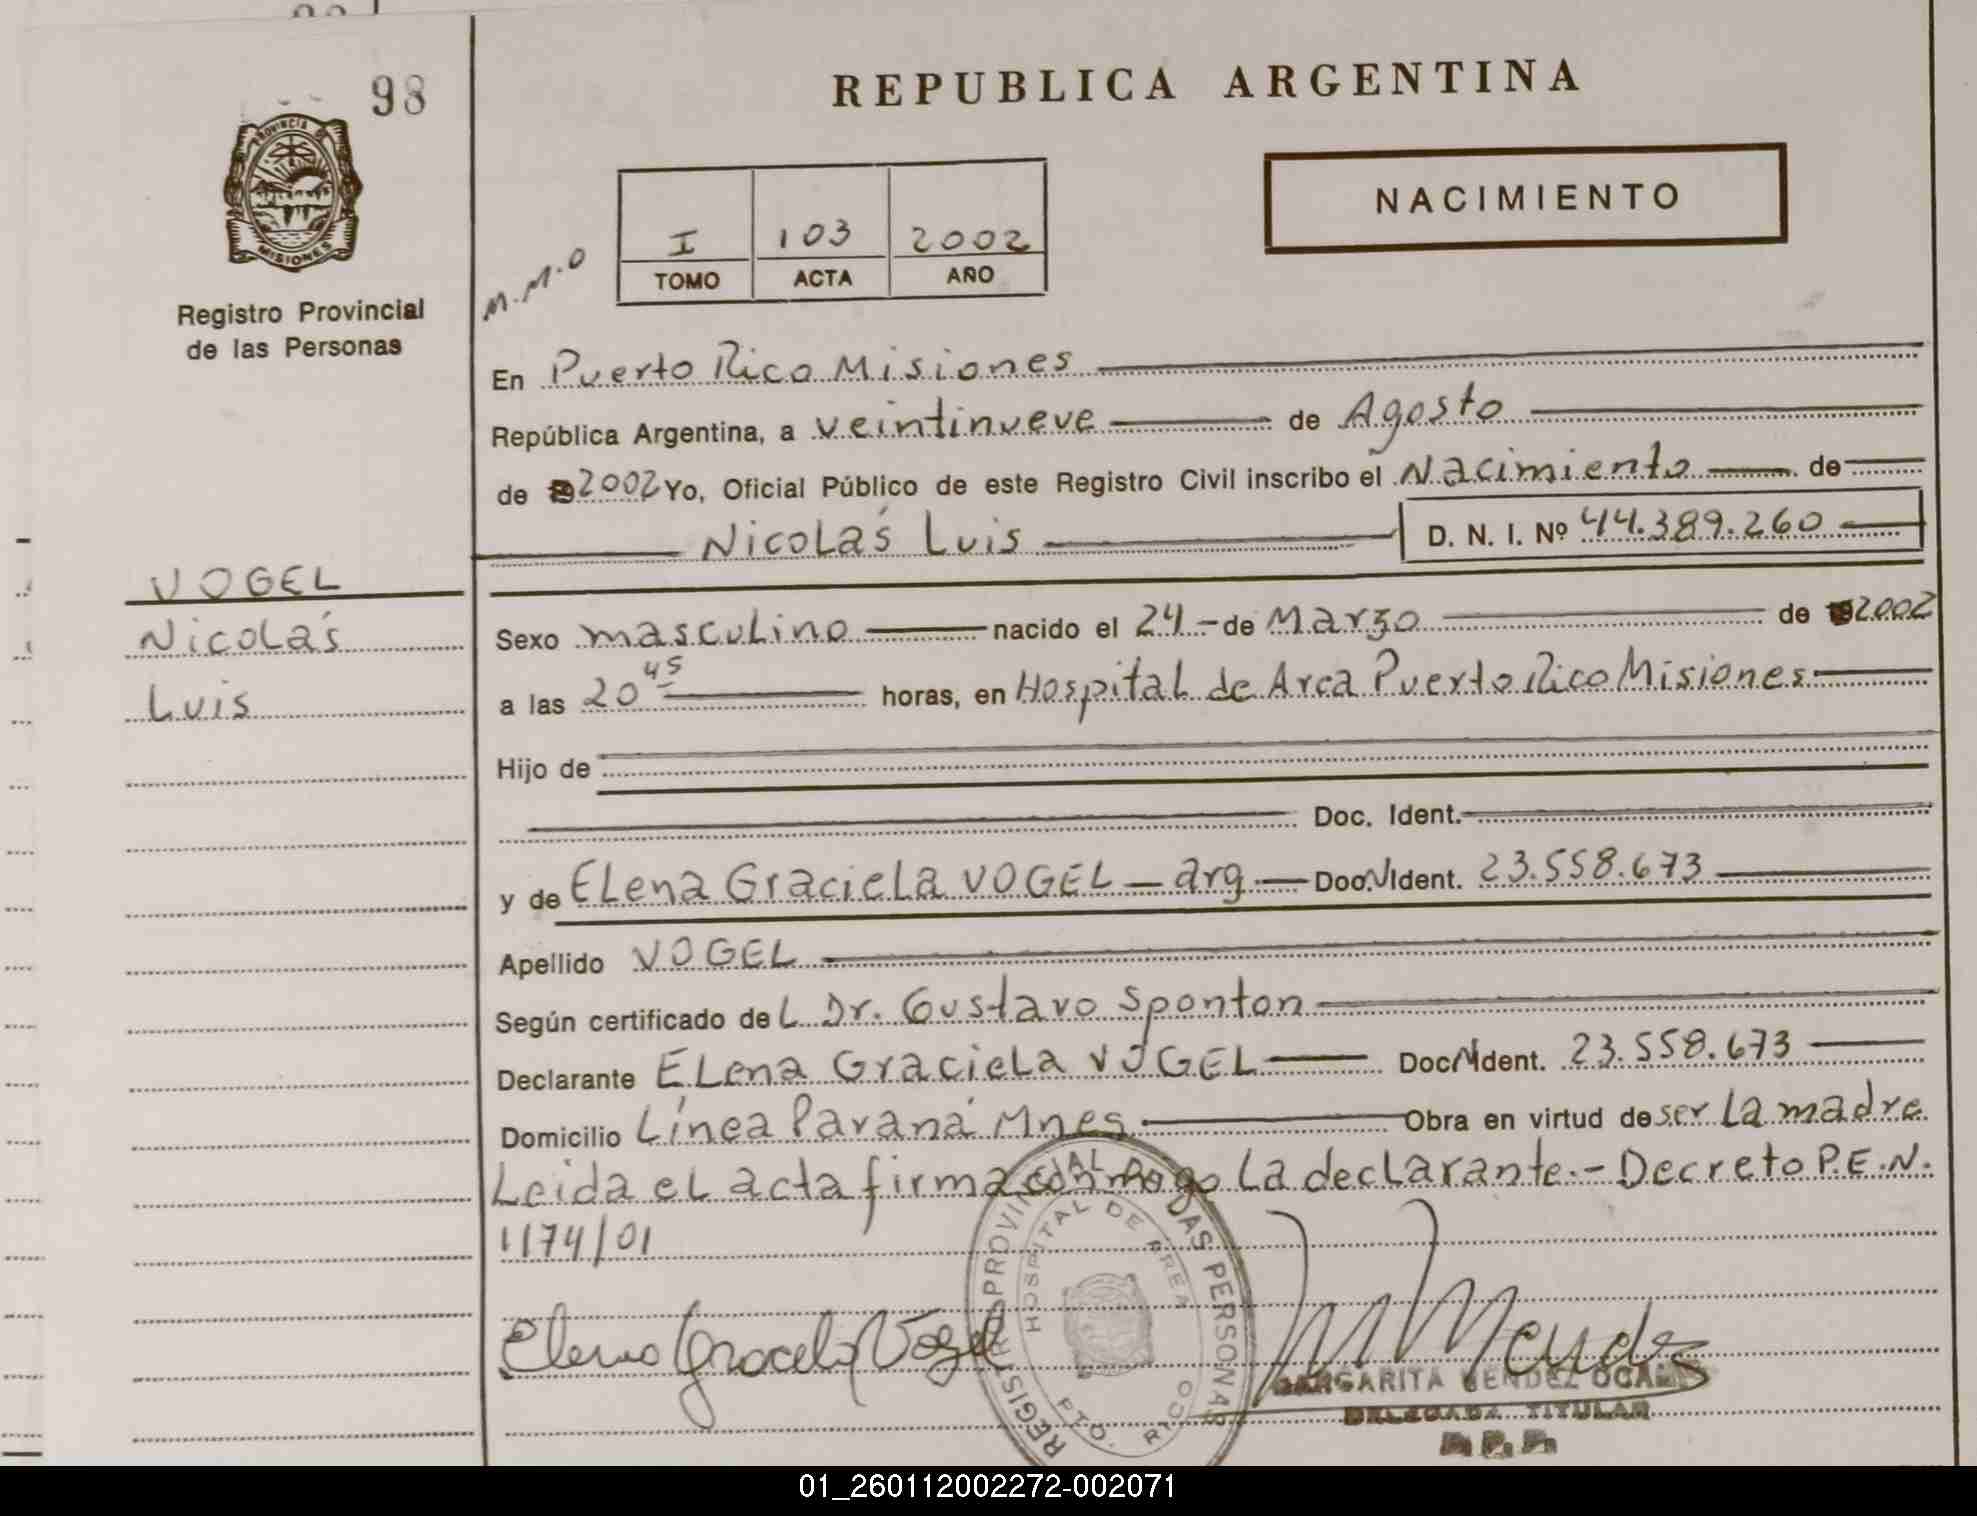 98
REPUBLICA ARGENTINA
PROVINCIA DE
MISIONES
Registro Provincial
de las Personas
M.M.O
I 103 2002
TOMO ACTA AÑO
NACIMIENTO
En Puerto Rico Misiones
República Argentina, a veintinueve de Agosto
de 2002 Yo, Oficial Público de este Registro Civil inscribo el Nacimiento de
Nicolás Luis D. N. I. Nº 44.389.260
VOGEL
Nicolás
Luis
Sexo masculino nacido el 24 - de Marzo de 2002
a las 20 45 horas, en Hospital de Area Puerto Rico Misiones
Hijo de
Doc. Ident.
y de Elena Graciela VOGEL - arg - Doc.N Ident. 23.558.673
Apellido VOGEL
Según certificado del Dr. Gustavo Sponton
Declarante Elena Graciela VOGEL Doc N Ident. 23.558.673
Domicilio Línea Paraná Mnes Obra en virtud de ser la madre
Leida el acta firma conmigo la declarante.- Decreto P.E.N.
1174/01
REGISTRO PROVINCIAL DE LAS PERSONAS
HOSPITAL DE AREA
PTO. RICO
Elena Graciela Vogel
M Mendez
MARGARITA MENDEZ OCAMPO
DELEGADA TITULAR
01_260112002272-002071